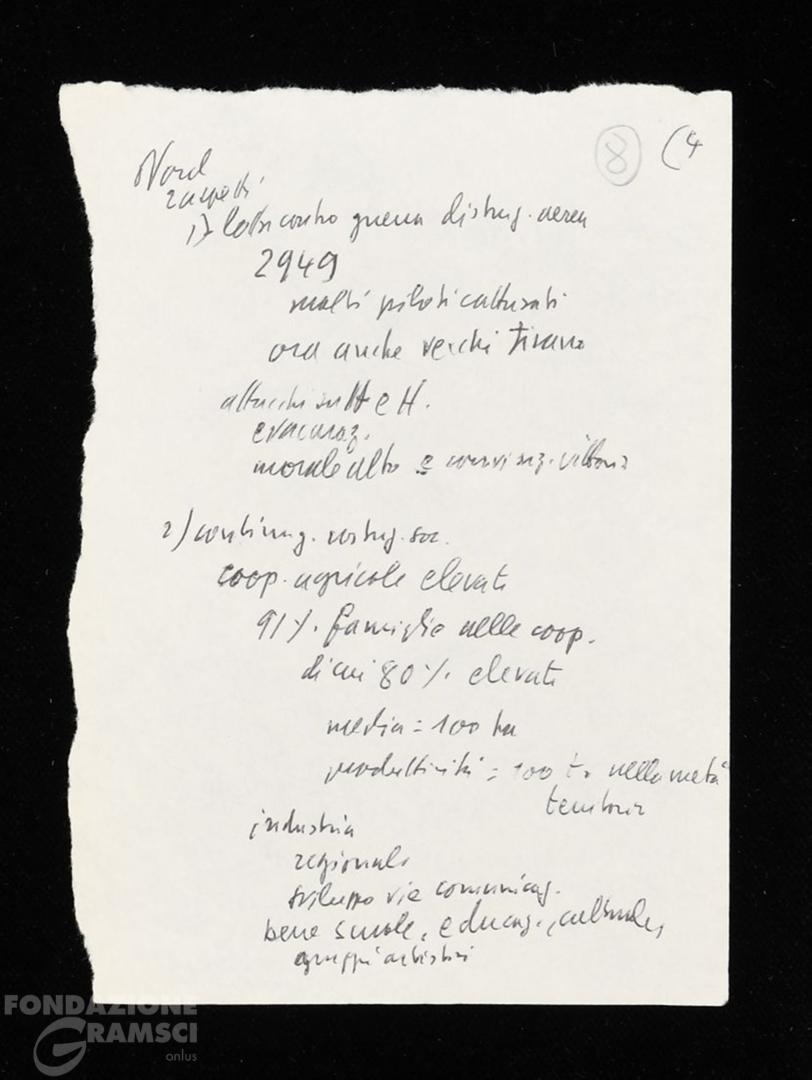 8 (4
Nord
2 aspetti
1) lotta contro guerra distrug. aerea
2949
molti piloti catturati
ora anche vecchi tirano
attacchi su H e H.
evacuaz.
morale alto e convinz. vittoria
2) continuaz. costruz. soc.
coop. agricole elevate
91%. famiglie nelle coop.
di cui 80%. elevate
media = 100 ha
produttività = 100 t. nella metà
territorio
industria
regionale
sviluppo vie comunicaz.
bene scuole, educaz., culturale,
gruppi artistici
FONDAZIONE
GRAMSCI
onlus